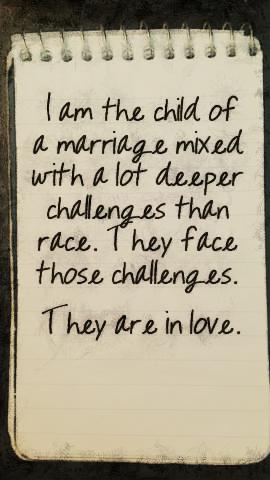 I am the child of
a marriage mixed
with a lot deeper
challenges than
race. They face
those challenges.
They are in love.